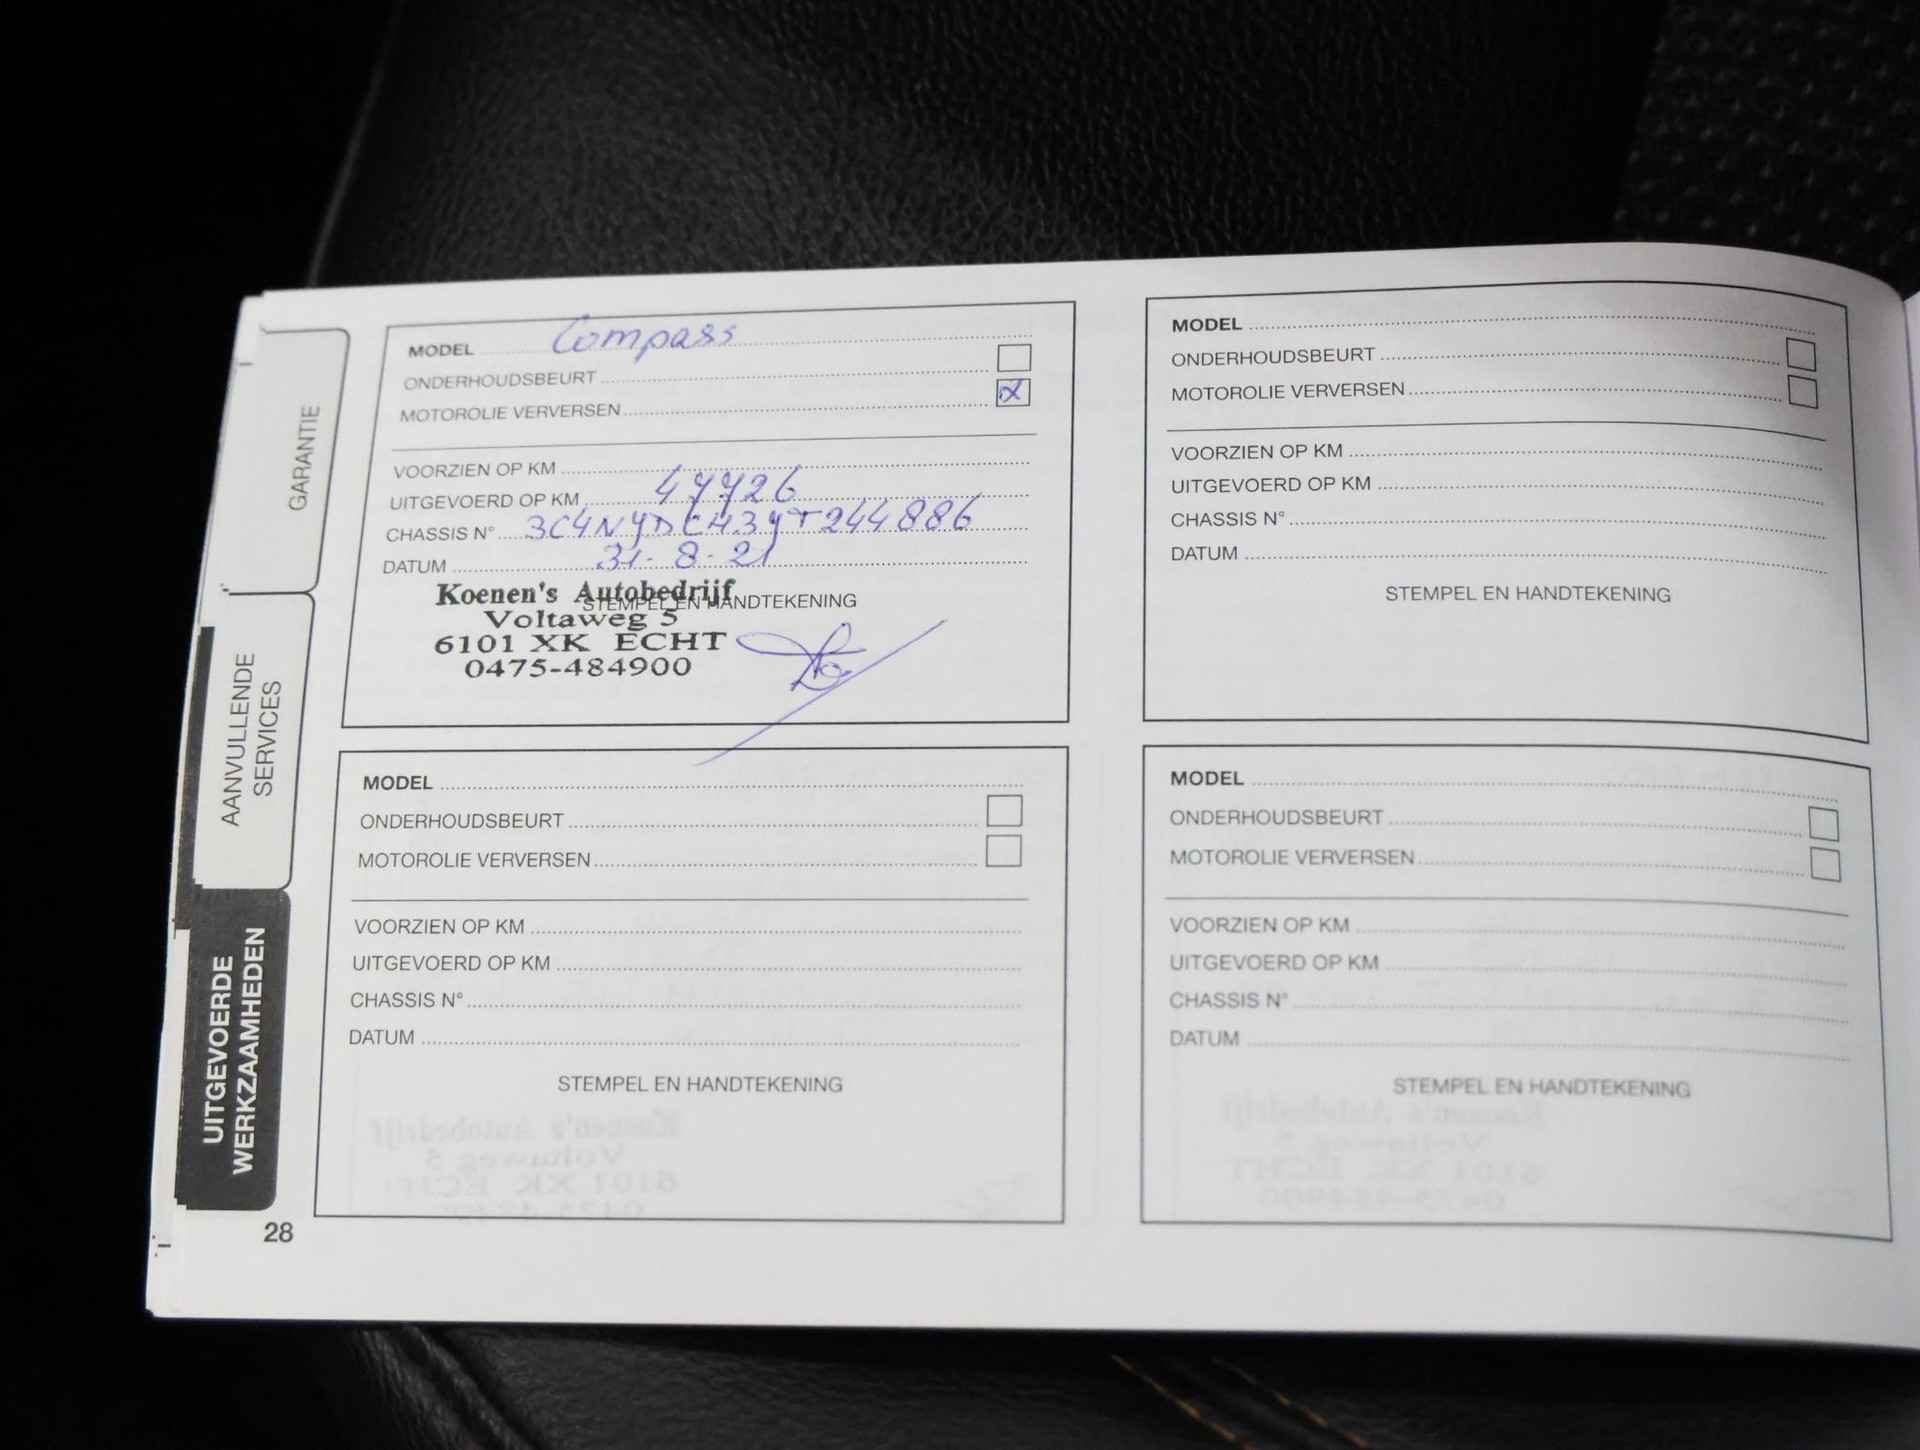 GARANTIE
AANVULLENDE
SERVICES
UITGEVOERDE
WERKZAAMHEDEN
MODEL Compass
ONDERHOUDSBEURT
MOTOROLIE VERVERSEN
VOORZIEN OP KM
UITGEVOERD OP KM 47726
CHASSIS N° 3C4NJDCH3JT244886
DATUM 31-8-21
STEMPEL EN HANDTEKENING
Koenen's Autobedrijf
Voltaweg 5
6101 XK ECHT
0475-484900
MODEL
ONDERHOUDSBEURT
MOTOROLIE VERVERSEN
VOORZIEN OP KM
UITGEVOERD OP KM
CHASSIS N°
DATUM
STEMPEL EN HANDTEKENING
MODEL
ONDERHOUDSBEURT
MOTOROLIE VERVERSEN
VOORZIEN OP KM
UITGEVOERD OP KM
CHASSIS N°
DATUM
STEMPEL EN HANDTEKENING
MODEL
ONDERHOUDSBEURT
MOTOROLIE VERVERSEN
VOORZIEN OP KM
UITGEVOERD OP KM
CHASSIS N°
DATUM
STEMPEL EN HANDTEKENING
28